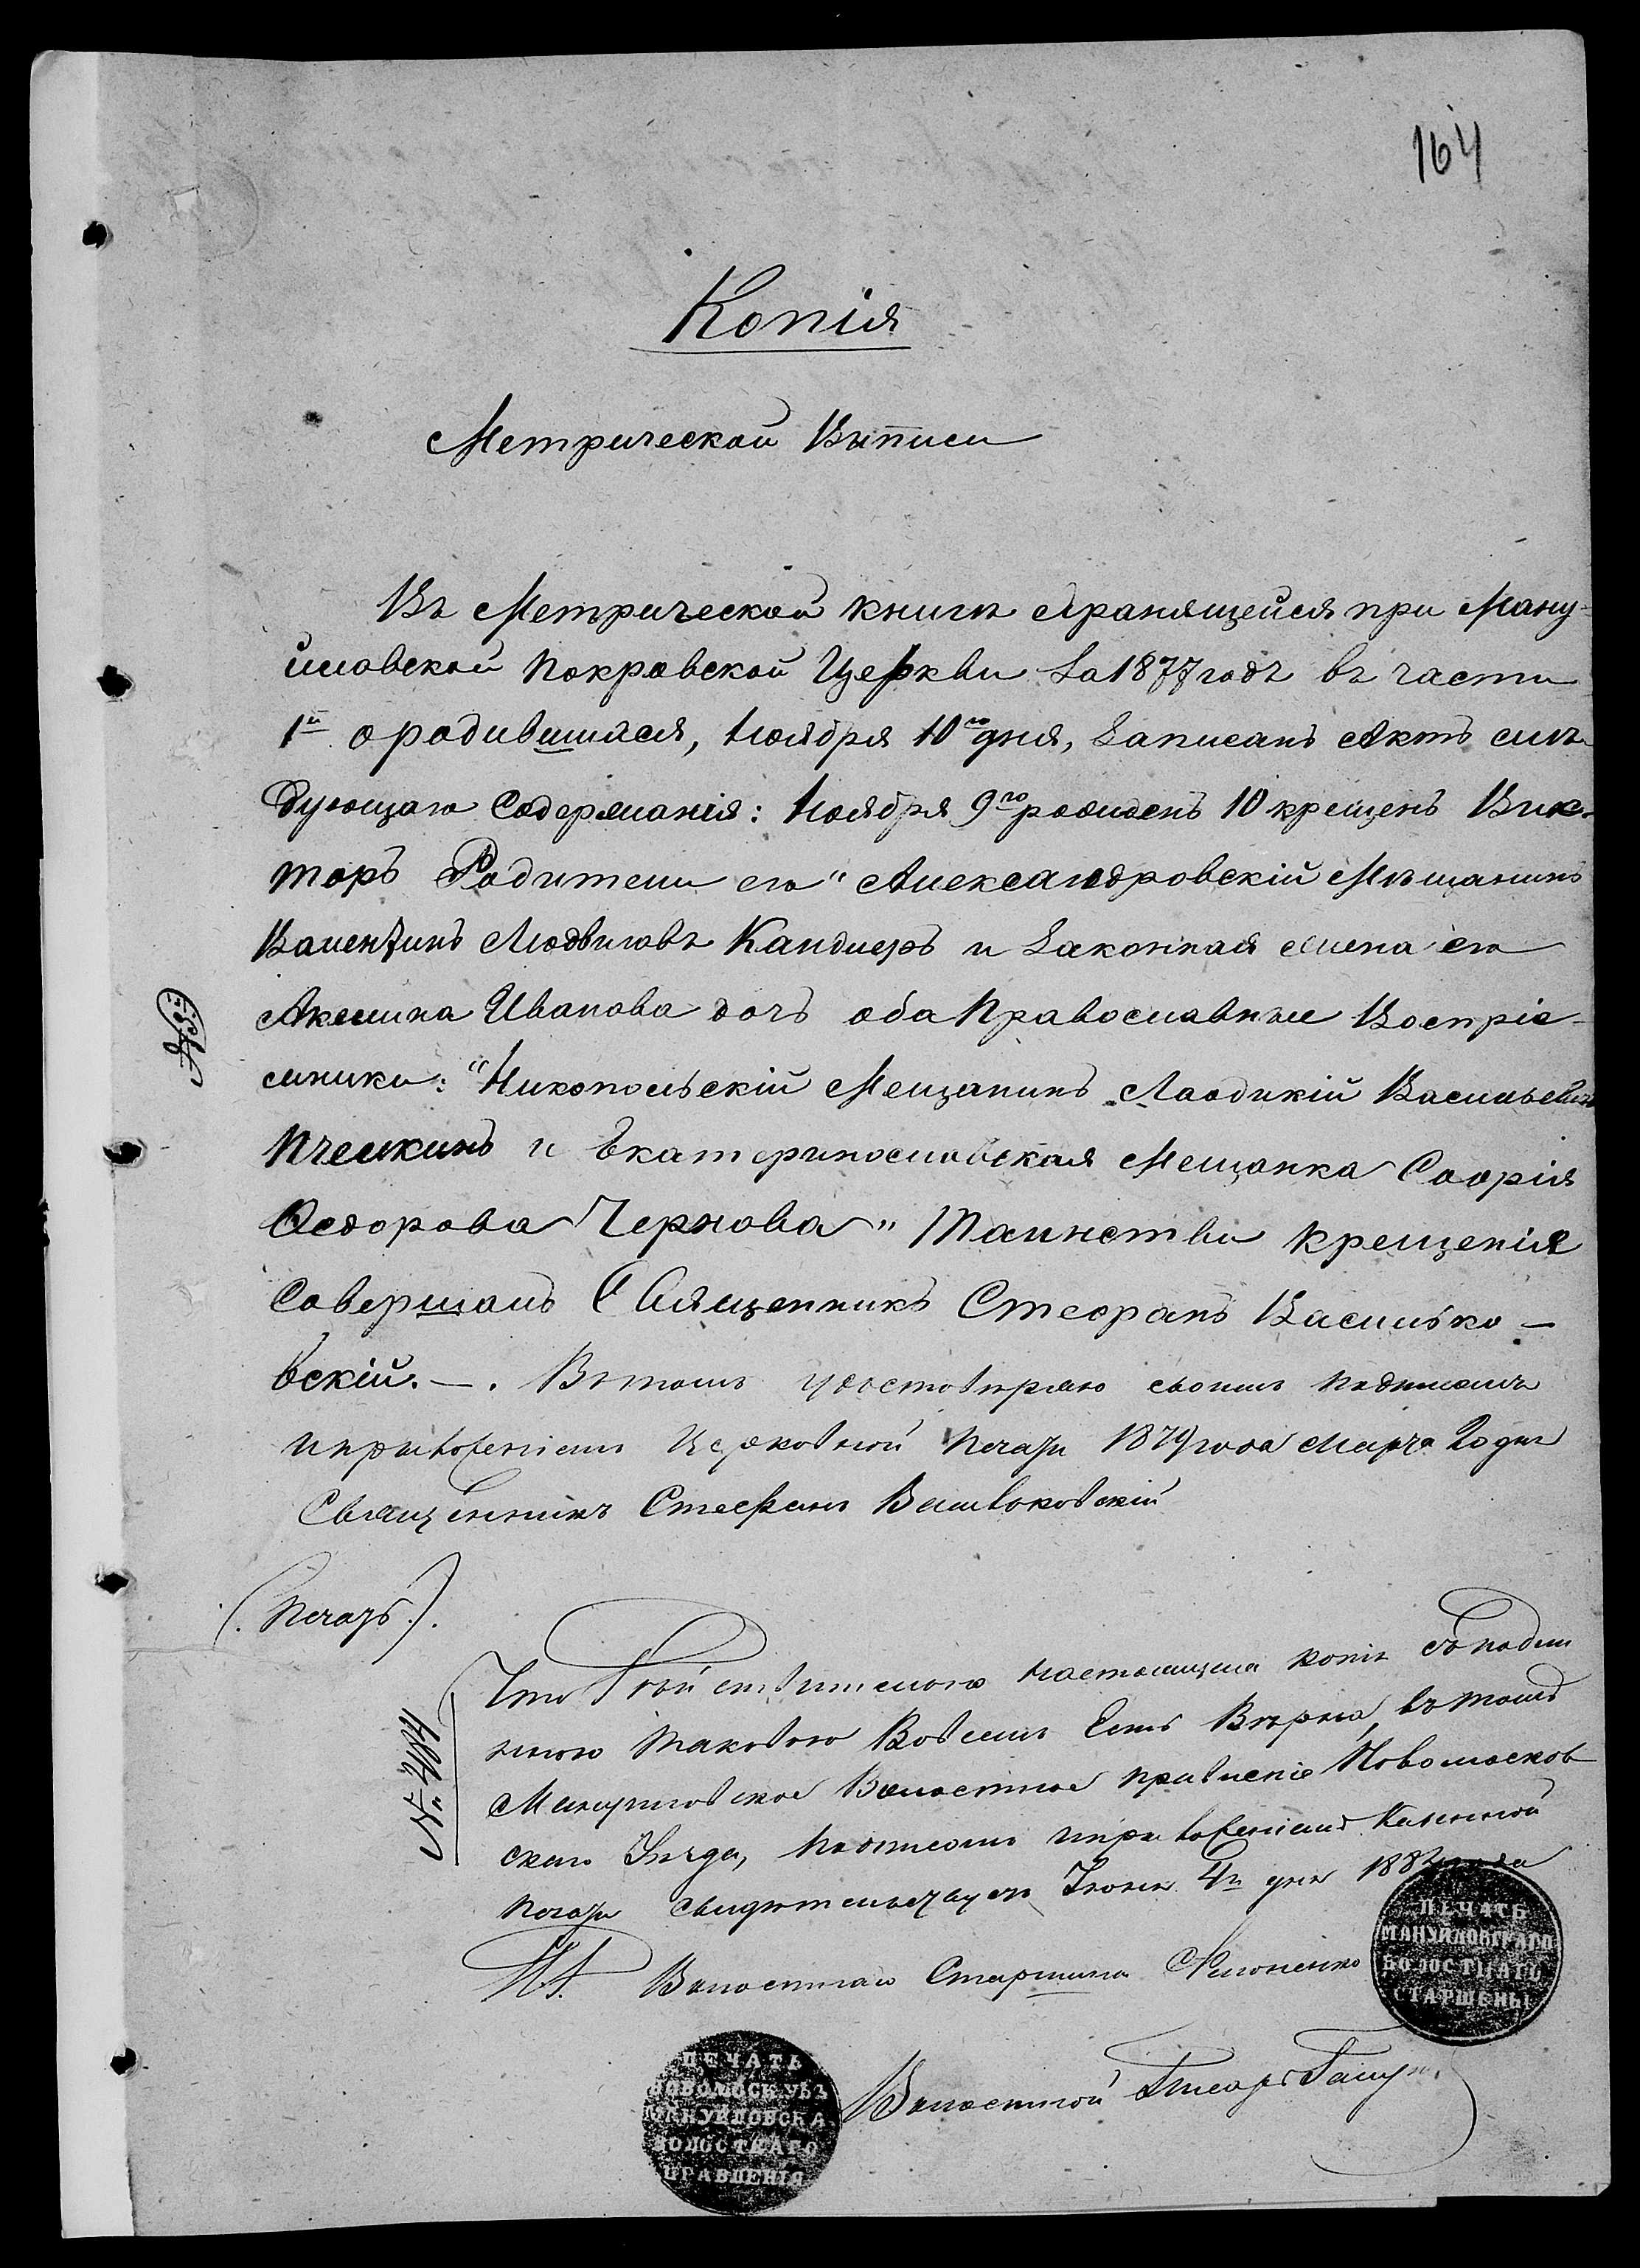 164
Копія
Метрической Выписи
Въ Метрической книгѣ хранящейся при Ману-
йловской Покровской Церкви за 1877 годъ въ части
1й о родившихся, Ноября 10го дня, записанъ Актъ слѣ-
дующаго Содержанія: Ноября 9го рожденъ 10 крещенъ Вик-
торъ Родители его "Александровскій Мѣщанинъ
Валентинъ Людвиговъ Кандлеръ и законная жена его
Акилина Иванова дочъ оба Православные Воспріе-
мники: "Никопольскій Мещанинъ Лаодикій Васильевичъ
Пчелкинъ и Екатеринославская Мещанка Софія
Ѳедорова Чернова" Таинство Крещенія
Совершалъ Священникъ Стефанъ Василько-
вскій. —. Въ томъ удостовѣряю своимъ подписомъ
и приложеніемъ Церковной Печати 1879 года Марта 20 дня
Священникъ Стефанъ Васильковскій
(Печать).
Что дѣйствительно настоящая копія съ подли
нною таковою во всемъ Есть Вѣрна, въ томъ
Мануйловское Волостное правленіе Новомосков
скаго Уѣзда, подписомъ и приложеніемъ Казенной
печати свидѣтельствуетъ Іюня 4го дня 1882 года
№ 484
И.д. Волостнаго Старшины
ПЕЧАТЬ
МАНУЙЛОВСКАГО
ВОЛОСТНАГО
СТАРШЕНЫ
Волостной Писарь
ПЕЧАТЬ
НОВОМОСК. УѢЗ
МАНУЙЛОВСКА
ВОЛОСТНАГО
ПРАВЛЕНІЯ